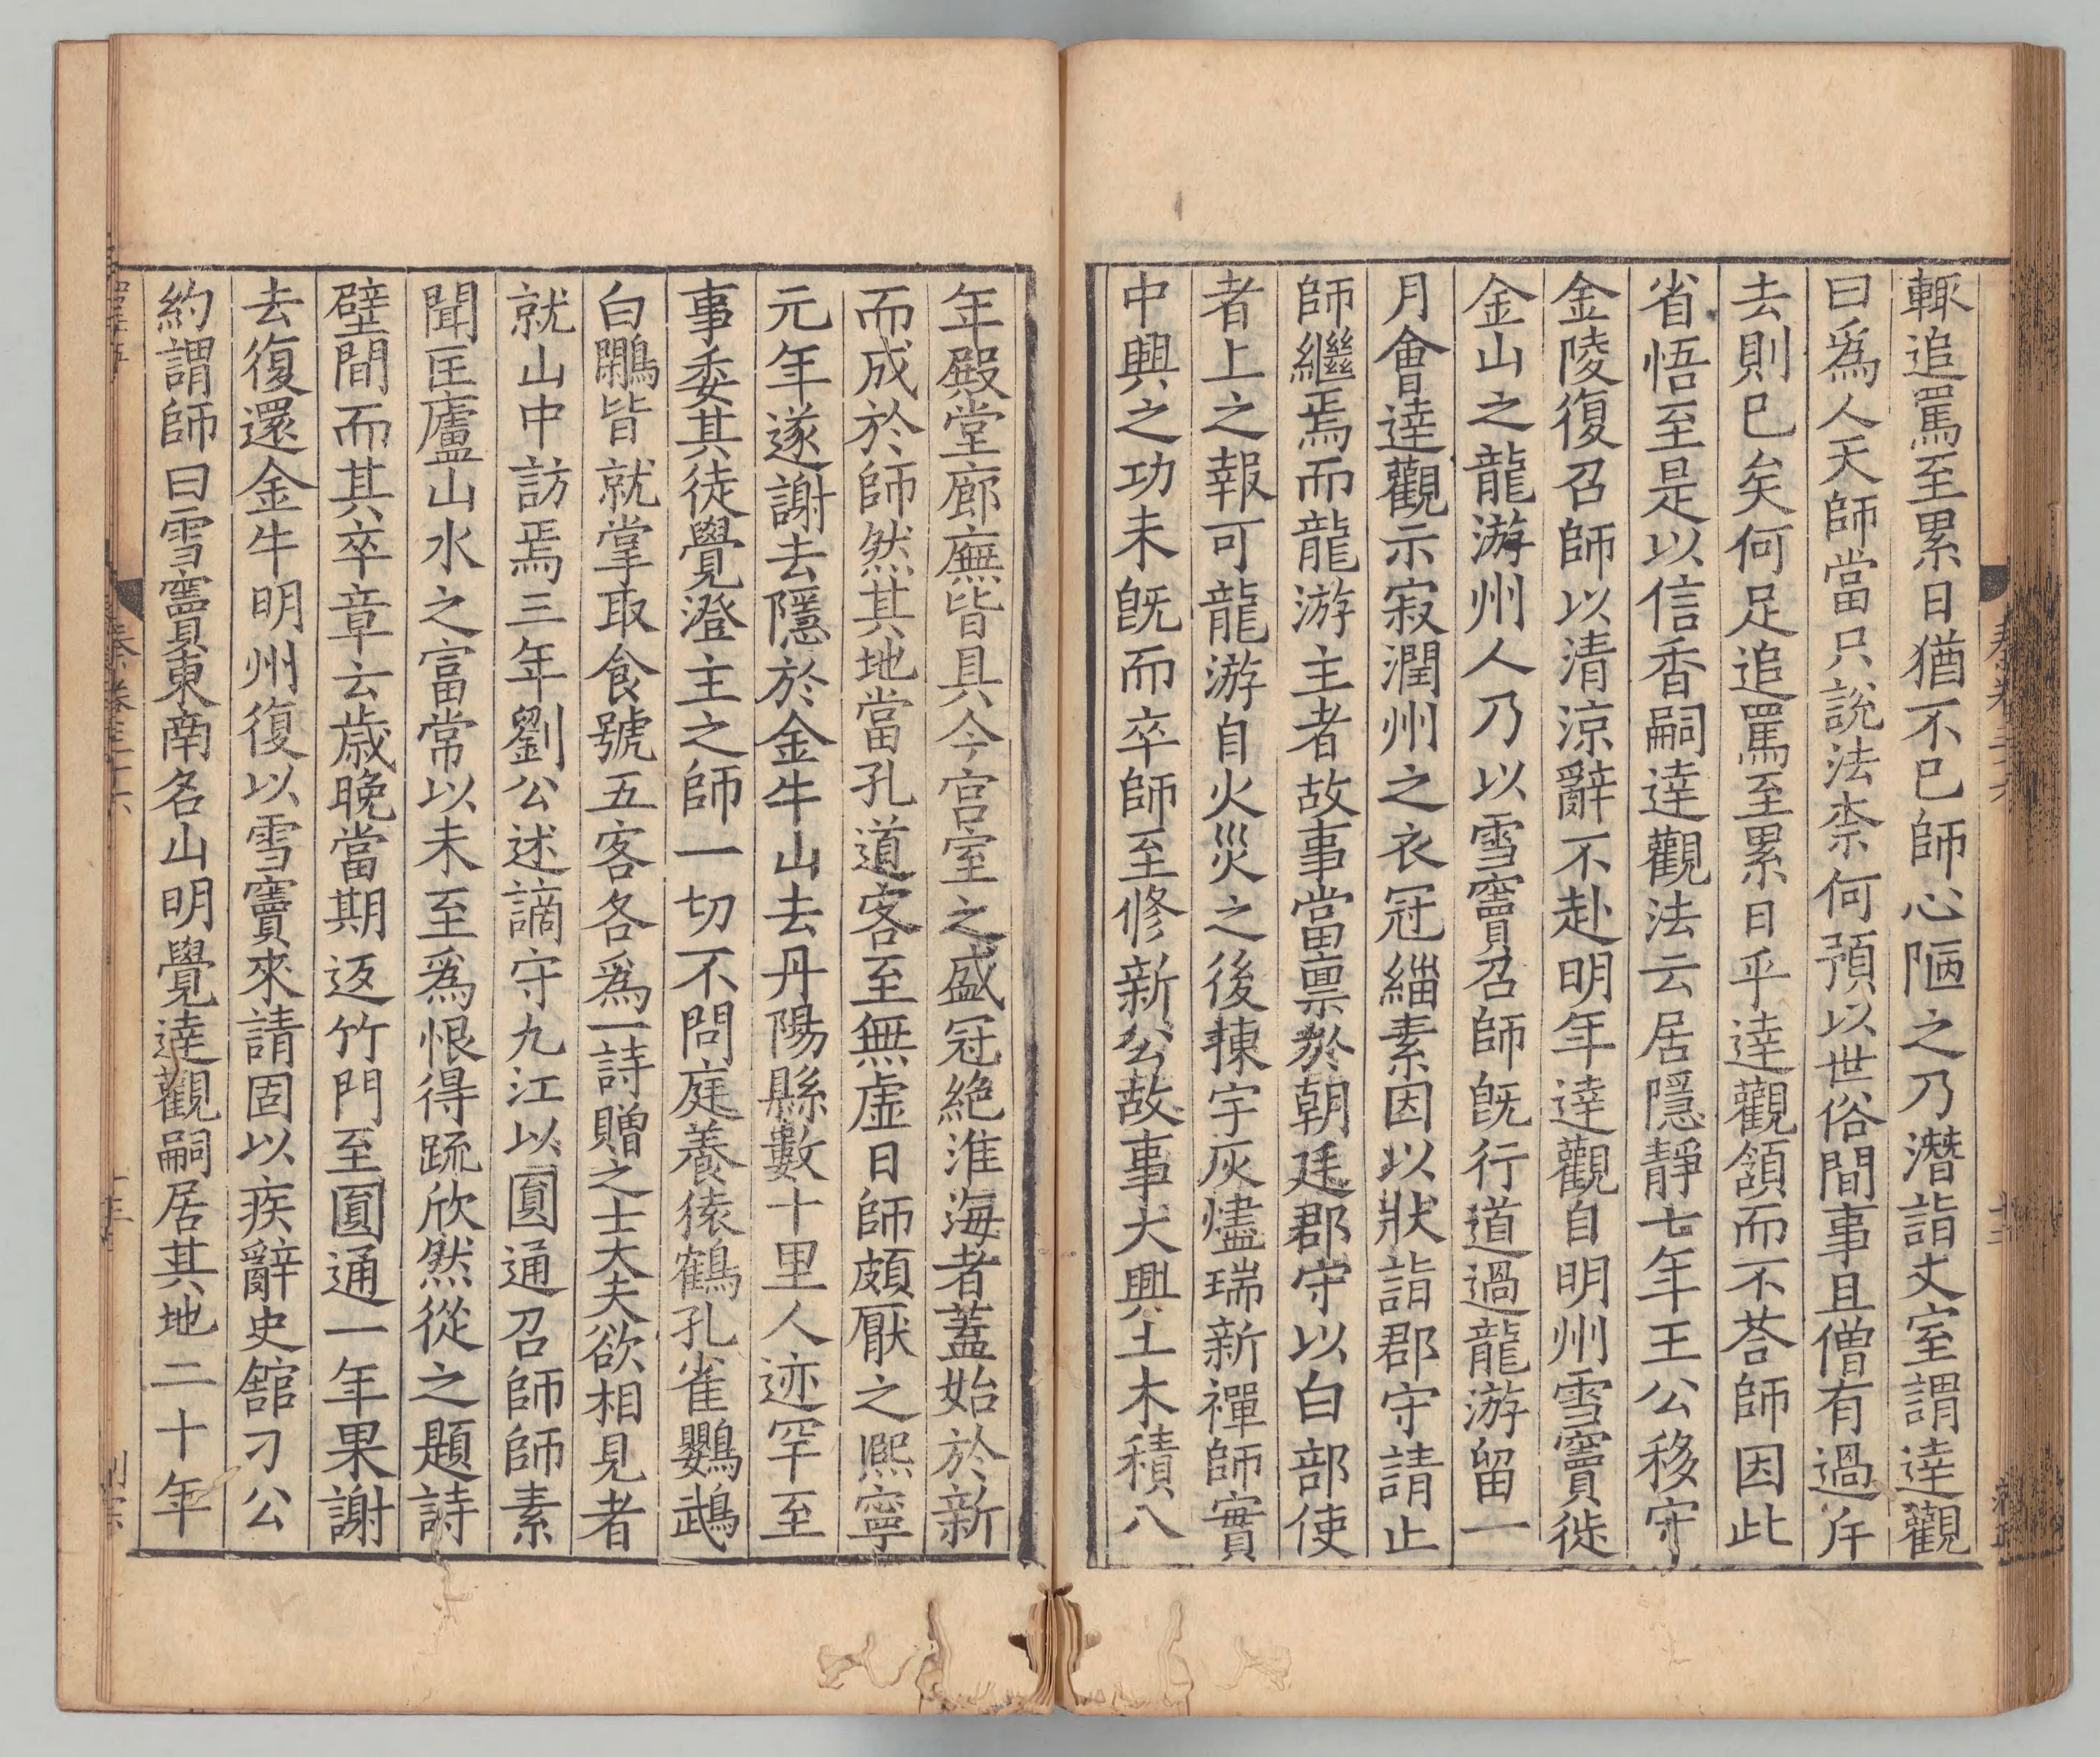 輙追罵至累日猶不已師心陋之乃潛詣丈室謂達觀
曰爲人天師當只說法柰何預以世俗間事且僧有過斥
去則已矣何足追罵至累日乎達觀頷而不荅師因此
省悟至是以信香嗣達觀法云居隱靜七年王公移守
金陵復召師以清涼辭不赴明年達觀自明州雪竇徙
金山之龍游州人乃以雪竇召師旣行道過龍游留一
月會達觀示寂潤州之衣冠緇素因以狀詣郡守請止
師繼焉而龍游主者故事當禀於朝廷郡守以白部使
者上之報可龍游自火災之後棟宇灰燼瑞新禪師實
中興之功未旣而卒師至修新公故事大興土木積八
年殿堂廊廡皆具今宫室之盛冠絶淮海者蓋始於新
而成於師然其地當孔道客至無虛日師頗厭之熈寧
元年遂謝去隱於金牛山去丹陽縣數十里人迹罕至
事委其徒覺澄主之師一切不問庭養猿鶴孔雀鸚鵡
白鷴皆就掌取食號五客各爲一詩贈之士大夫欲相見者
就山中訪焉三年劉公述謫守九江以圓通召師師素
聞匡廬山水之富常以未至爲恨得䟽欣然從之題詩
壁間而其卒章云歳晚當期返竹門至圓通一年果謝
去復還金牛明州復以雪竇來請固以疾辭史舘刁公
約謂師曰雪竇東南名山明覺達觀嗣居其地二十年
秦卷三十六